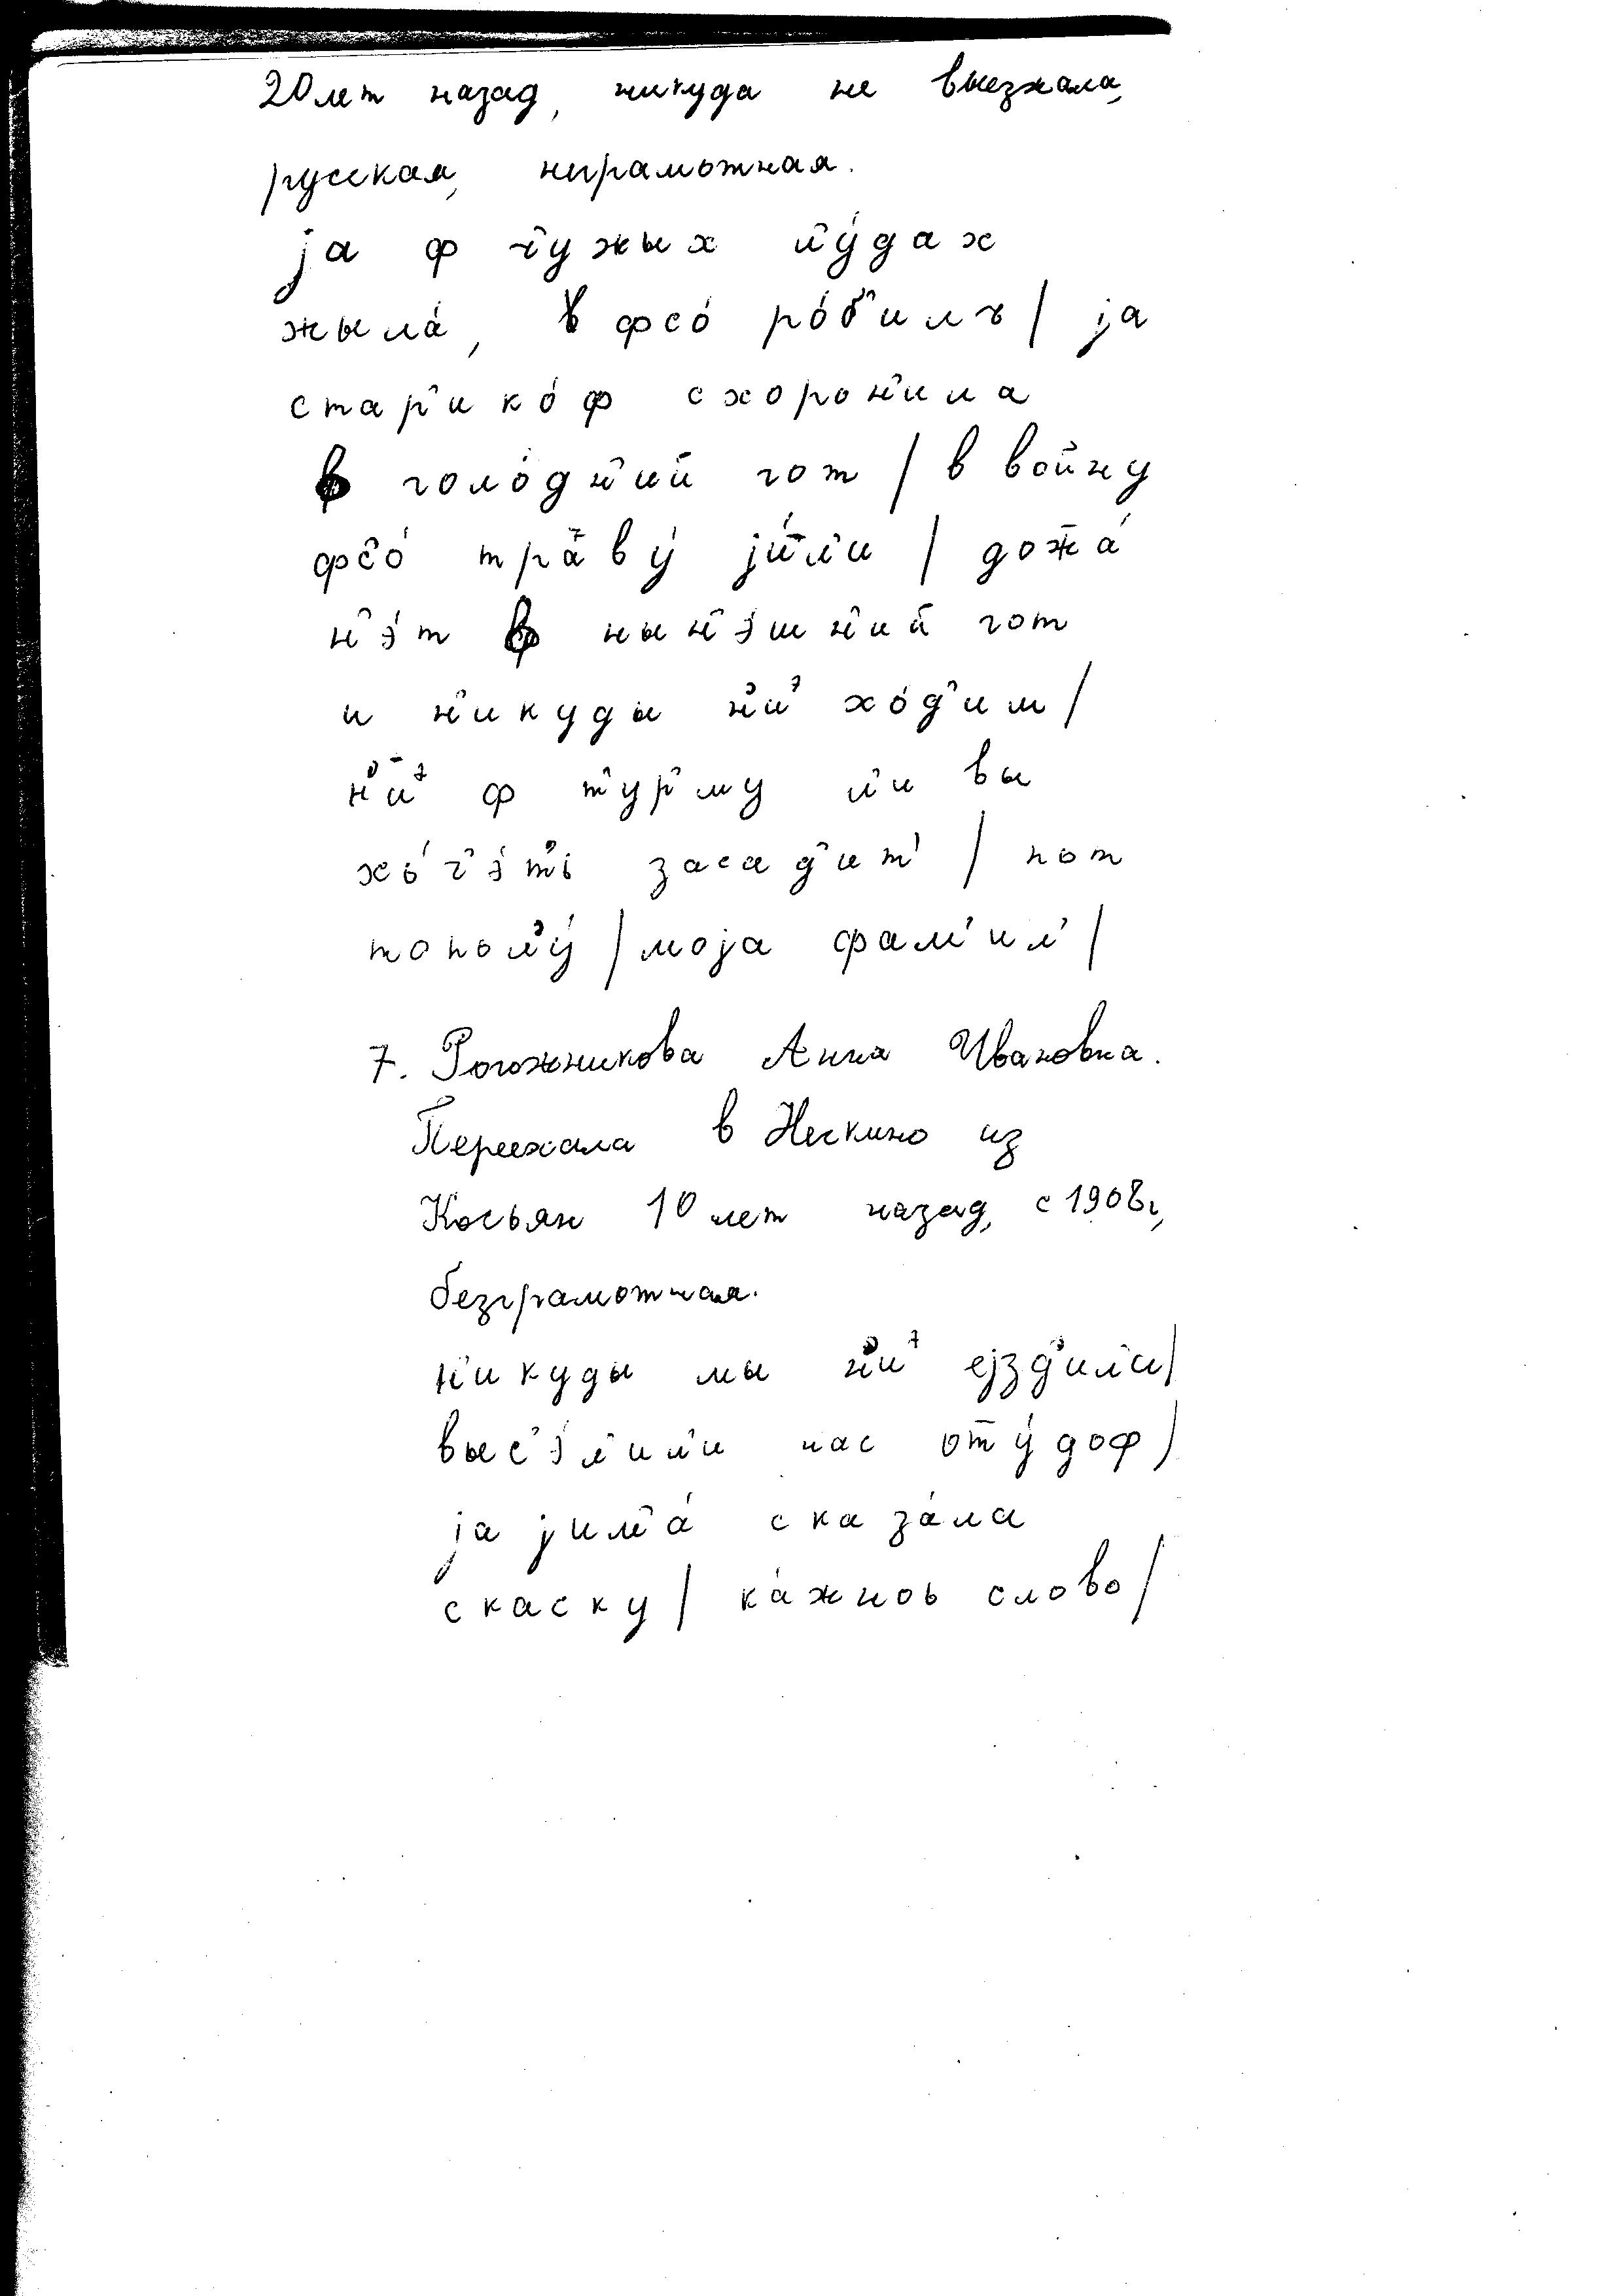 20 лет назад, никуда не выезжала,
русская, неграмотная.
jа ф ч̂ужых л̂у́дах
жыла́, в фсо́ ро́б̂илъ / jа
стар̂ико́ф схорон̂ила
в голо́дн̂ий гот / в войну
фс̂о́ траву́ jи́л̂и / дожа́
н̂э́т в нын̂э́шн̂ий гот
и н̂икуды н̂и^э хо́д̂им /
н̂и^э ф т̂ур̂му л̂и вы
хо́ч̂э́т̂ь засад̂ит̂ / пот
топол̂у́ / моjа фам̂ил̂ /
7. Рогожникова Анна Ивановна.
Переехала в Нескино из
Косьян 10 лет назад, с 1908 г,
безграмотная.
н̂икуды мы н̂и^э ejзд̂ил̂и /
выс̂э́л̂ил̂и нас от̄у́доф /
jа jим̂а́ сказа́ла
скаску / ка́жноь слово /